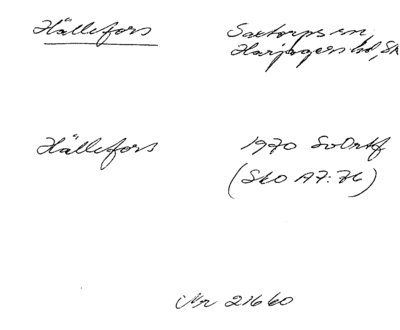 Hällefors
Saxtorps sn,
Harjagers hd, Sk
Hällefors
1970 SvOrtf
(SkO A7:76)
Nr 21660